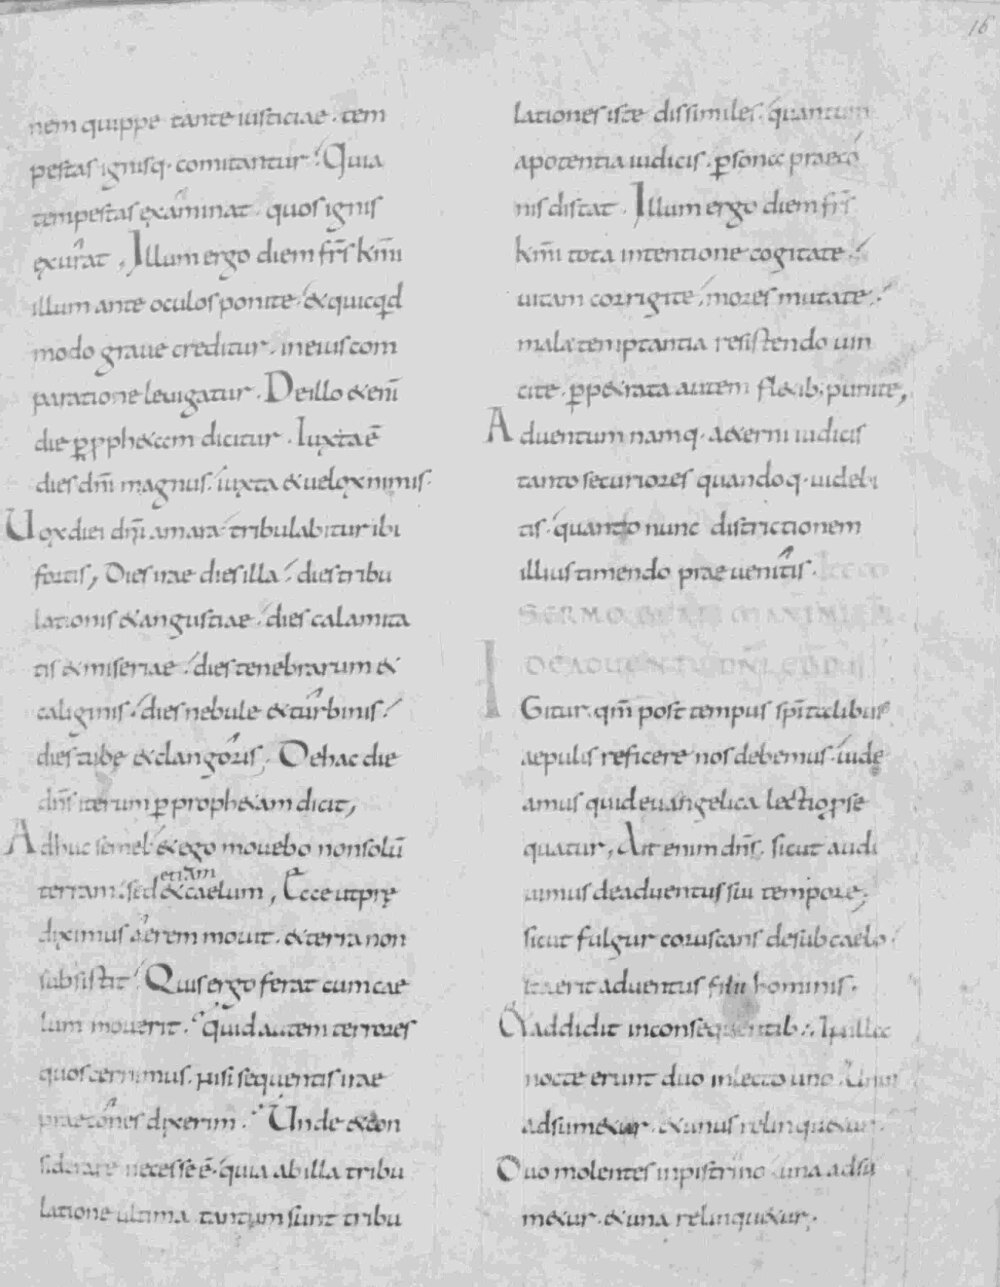 16
nem quippe tante iusticiae. tem
pestas ignisq. comitantur. Quia
tempestas examinat. quos ignis
exurat. Illum ergo diem frs kmi
illum ante oculos ponite. & quicqd
modo graue creditur. in eius com
paratione leuigatur. De illo &eni
die p pph&am dicitur. Iuxta ē
dies dni magnus. iuxta & uelox nimis.
Uox diei dni amara tribulabitur ibi
fortis, Dies irae dies illa. dies tribu
lationis & angustiae. dies calamita
tis & miseriae. dies tenebrarum &
caliginis. dies nebule & turbinis.
dies tube & clangoris. De hac die
dns iterum p proph&am dicit,
Adhuc semel & ego mouebo non solū
terram. sed etiam & caelum, Ecce ut prę
diximus aerem mouit. & terra non
subsistit. Quis ergo ferat cum cae
lum mouerit. quid autem terrores
quos cernimus. nisi sequentis irae
praecones dixerim. Unde & con
siderare necesse ē. quia ab illa tribu
latione ultima tantum sunt tribu
lationes iste dissimiles. quantum
a potentia iudicis. psona praeco
nis distat. Illum ergo diem frs
kmi tota intentione cogitate.
uitam corrigite. mores mutate.
mala temptantia resistendo uin
cite. pp&rata autem fl&ib; punite,
Aduentum namq. aeterni iudicis
tanto securiores quandoq. uidebi
tis. quanto nunc districtionem
illius timendo praeuenitis.
SERMO BEATI MAXIMI
DE ADUENTU DNI
IGitur qm post tempus spitalibus
aepulis reficere nos debemus. uide
amus quid euangelica lectio pse
quatur, Ait enim dns. sicut audi
uimus de aduentus sui tempore,
sicut fulgur coruscans de sub caelo.
ita erit aduentus filii hominis.
&addidit in consequentib. In illa
nocte erunt duo in lecto uno. Unus
adsum&ur. & unus relinqu&ur.
Duo molentes in pistrino una adsu
m&ur. & una relinqu&ur.